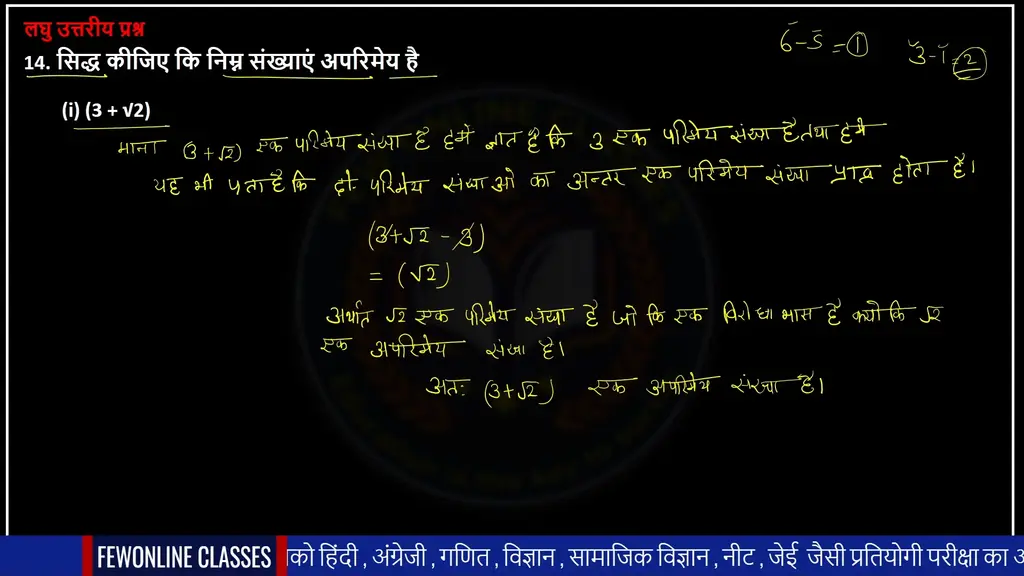 लघु उत्तरीय प्रश्न
14. सिद्ध कीजिए कि निम्न संख्याएं अपरिमेय है
6-5=1
3-1=2
(i) (3 + √2)
माना (3+√2) एक परिमेय संख्या है हमें ज्ञात है कि 3 एक परिमेय संख्या है तथा हमें
यह भी पता है कि दो परिमेय संख्याओं का अन्तर एक परिमेय संख्या प्राप्त होता है।
(3+√2 - 3)
= (√2)
अर्थात √2 एक परिमेय संख्या है जो कि एक विरोधाभास है क्योंकि √2
एक अपरिमेय संख्या है।
अतः (3+√2) एक अपरिमेय संख्या है।
FEWONLINE CLASSES
को हिंदी , अंग्रेजी , गणित , विज्ञान , सामाजिक विज्ञान , नीट , जेई जैसी प्रतियोगी परीक्षा का